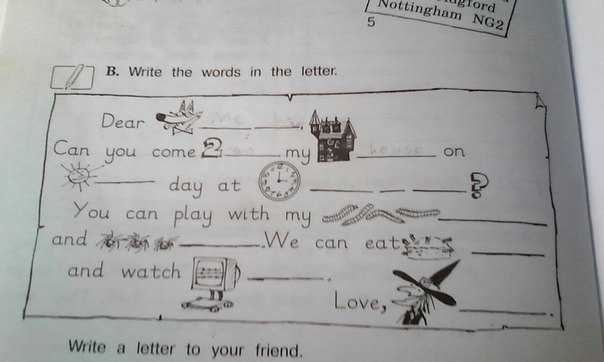 Nottingham NG2
5
B. Write the words in the letter.
Dear
Can you come 2 my house on
day at ?
You can play with my
and . We can eat
and watch .
Love, .
Write a letter to your friend.